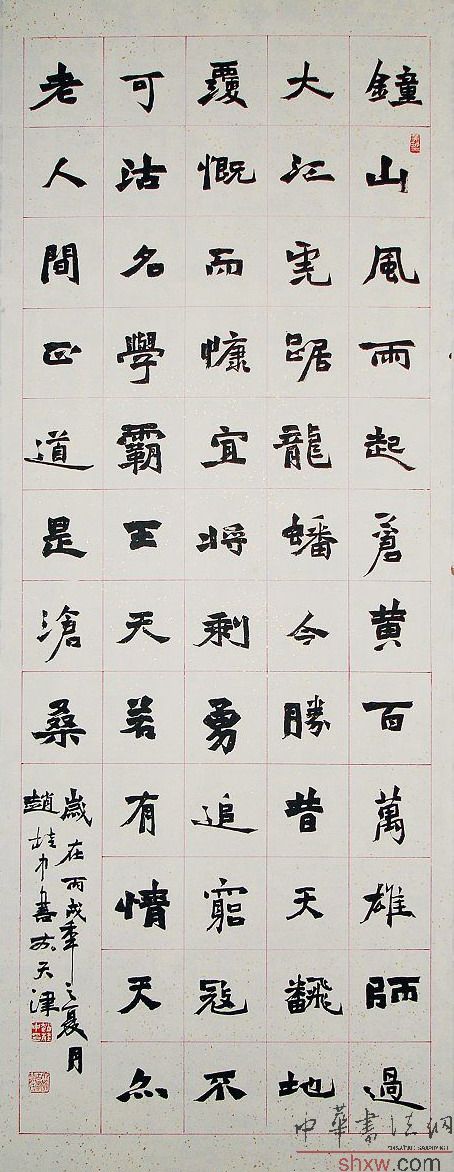 鐘山風雨起蒼黃百萬雄師過
大江虎踞龍蟠今勝昔天翻地
覆慨而慷宜將剩勇追窮寇不
可沽名學霸王天若有情天亦
老人間正道是滄桑
歲在丙戌年之夏月
趙桂中書於天津
中華書法網
shxw.com